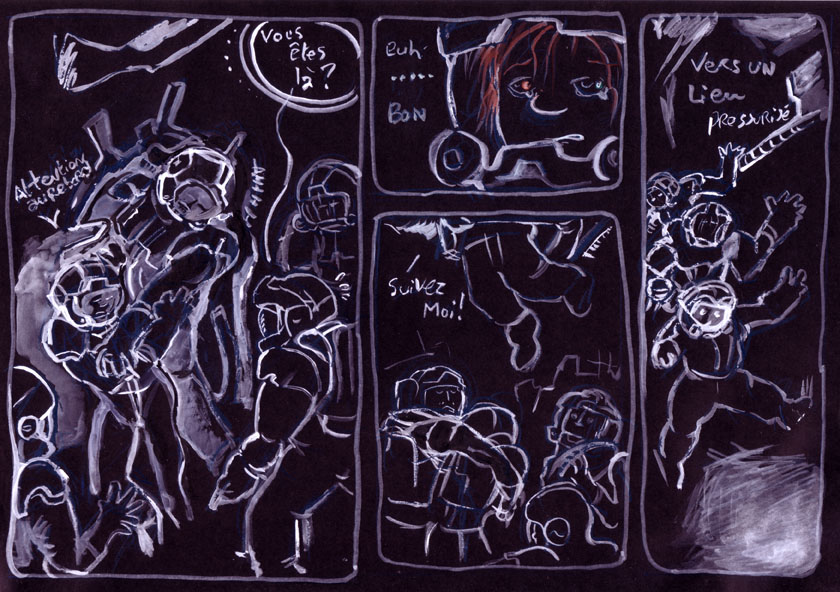 Vous
êtes
là?
Attention
euh
.....
BON
Suivez
Moi!
Vers un
Lieu
pressurisé